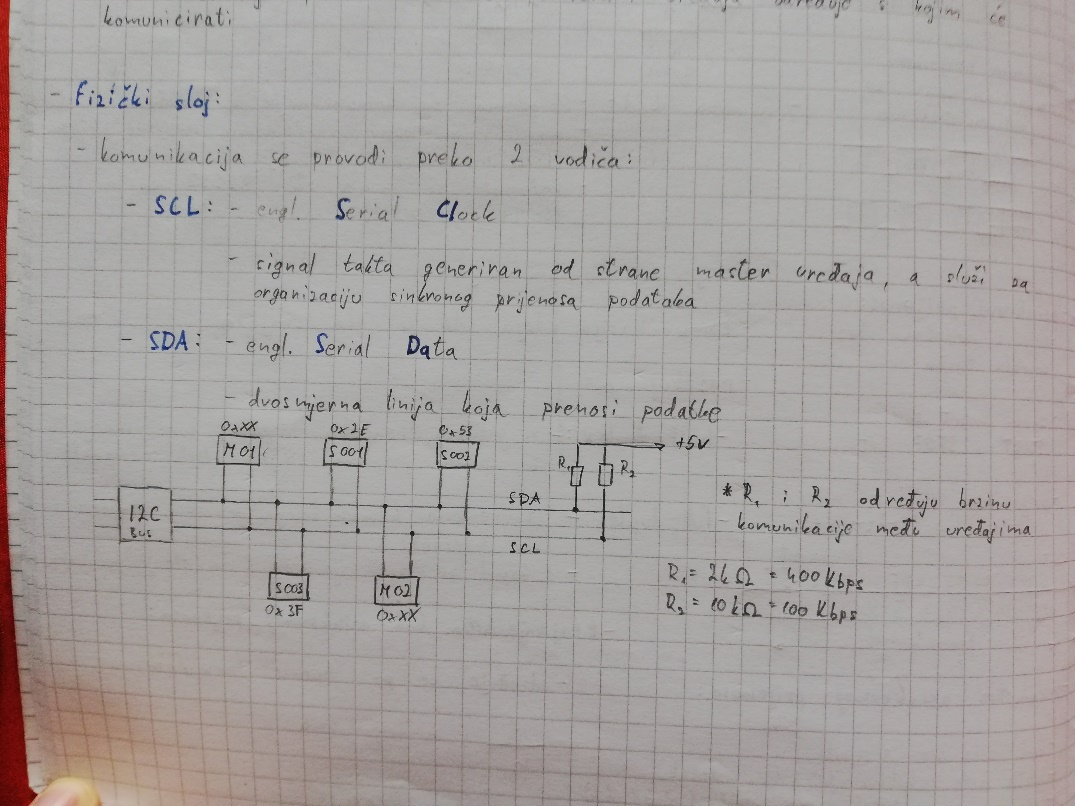 s kojim će
komunicirati
- Fizički sloj:
- komunikacija se provodi preko 2 vodiča:
- SCL: - engl. Serial Clock
- signal takta generiran od strane master uređaja, a služi za
organizaciju sinkronog prijenosa podataka
- SDA: - engl. Serial Data
- dvosmjerna linija koja prenosi podatke
0xXX 0x2E 0x53
M01 S001 S002 R₁ R₂ +5V
I2C
BUS
SDA
SCL
* R₁ i R₂ određuju brzinu
komunikacije među uređajima
S003 M02
0x3F 0xXX
R₁ = 2kΩ = 400 Kbps
R₂ = 10kΩ = 100 Kbps